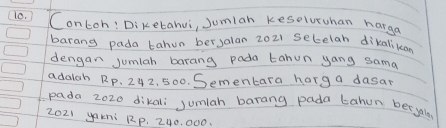 10.) Contoh: Diketahui, Jumlah keseluruhan harga
barang pada tahun berjalan 2021 setelah dikalikan
dengan Jumlah barang pada tahun yang sama
adalah Rp. 242.500. Sementara harga dasar
pada 2020 dikali Jumlah barang pada tahun berjalan
2021 yakni Rp. 240.000.